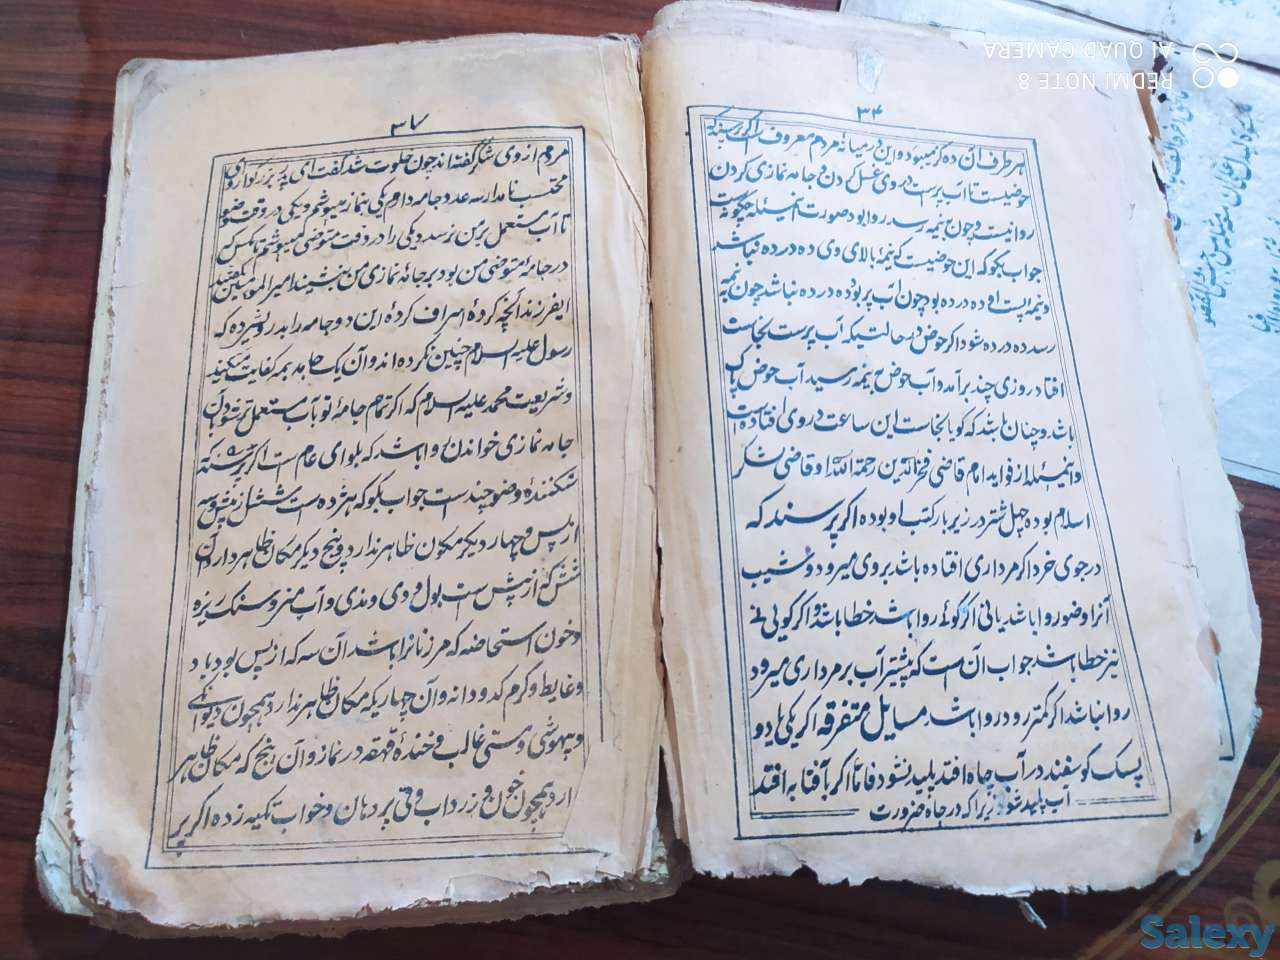 ۳۴
هر طرف آن ده گز میبوده و این در میانهٔ مردم معروف است اگر پرسند که
حوضیست تا آب پر است در وی غسل کردن و جامه نمازی کردن
روا نیست و چون بنیمه رسد روا بود صورت این مسئله چگونه است
جواب بگو که این حوضیست که نیمهٔ بالای وی ده در ده نباشد
و نیمه پست او ده در ده بود چون آب پر بوده ده در ده نباشد چون بنیمه
رسد ده در ده شود اگر حوض در حالتیکه آب پرست نجاست
افتاد روزی چند برآمد و آب حوض به نیمه رسید آب حوض پاک
باشد و چنان باشد که گویا نجاست این ساعت در وی افتاده است
و این مسئله از فواید امام قاضی فخرالدین رحمة الله و قاضی لشکر
اسلام بوده چهل شتر در زیر بار کتب او بوده اگر پرسند که
در جوی خرد اگر مرداری افتاده باشد بروی میرود و شیب
آنرا وضو روا باشد یا نی اگر گوئے روا باشد خطا باشد و اگر گویی نے
نیز خطا باشد جواب آن است که بیشتر آب بر مرداری میرود
روا نباشد اگر کمتر رود روا باشد مسایل متفرقه اگر یکی یا دو
پسک گوسفند در آب چاه افتد پلید نشود و فاما اگر بآفتابه افتد
آب پلید شود زیرا که در چاه ضرورت
۳۷
مردم از وی شکر گفته اند چون خلوت شد گفت ای پدر بزرگوار وی
محتسب نامدار سه عدد جامه دارم یکی بنماز میپوشم و یکی در وقت وضو
تا آب مستعمل بر من نرسد و یکی را در وقت متوضی میپوشم تا مگس که
در جامهٔ متوضی من بود بر جامهٔ نمازی من ننشیند امیرالمومنین گفتند
ای فرزند آنچه کردهٔ اسراف کردهٔ این دو جامه را بدرویش ده که
رسول علیه السلام چنین نکرده اند و آن یک جامه بهمه کفایت میکنید
و شریعت محمد علیه السلام که اگر تمام جامهٔ تو بآب مستعمل تر شود بآن
جامه نمازی خواندن روا باشد که بلوای عام است اگر پرسند که
شکنندهٔ وضو چند ست جواب بگو که هژده است شش از پیش و سه
از پس و چهار دیگر مکون ظاهر ندارد و پنج دیگر مکان ظاهر دارد آن
شش که از پیش ست بول و ودی و مذی و آب منی و سنگ ریزه
و خون استحاضه که مر زنانرا باشد آن سه که از پس بود باد
و غایط و کرم کدو دانه و آن چهار یکه مکان ظاهر ندارد همچون دیوانگے
و بیهوشی و مستی غالب و خندهٔ قهقه در نماز و آن پنج که مکان ظاهر
دارد همچون خون و زرد آب و قی پر دهان و خواب تکیه زده اگر بر
REDMI NOTE 8
AI QUAD CAMERA
Salexy